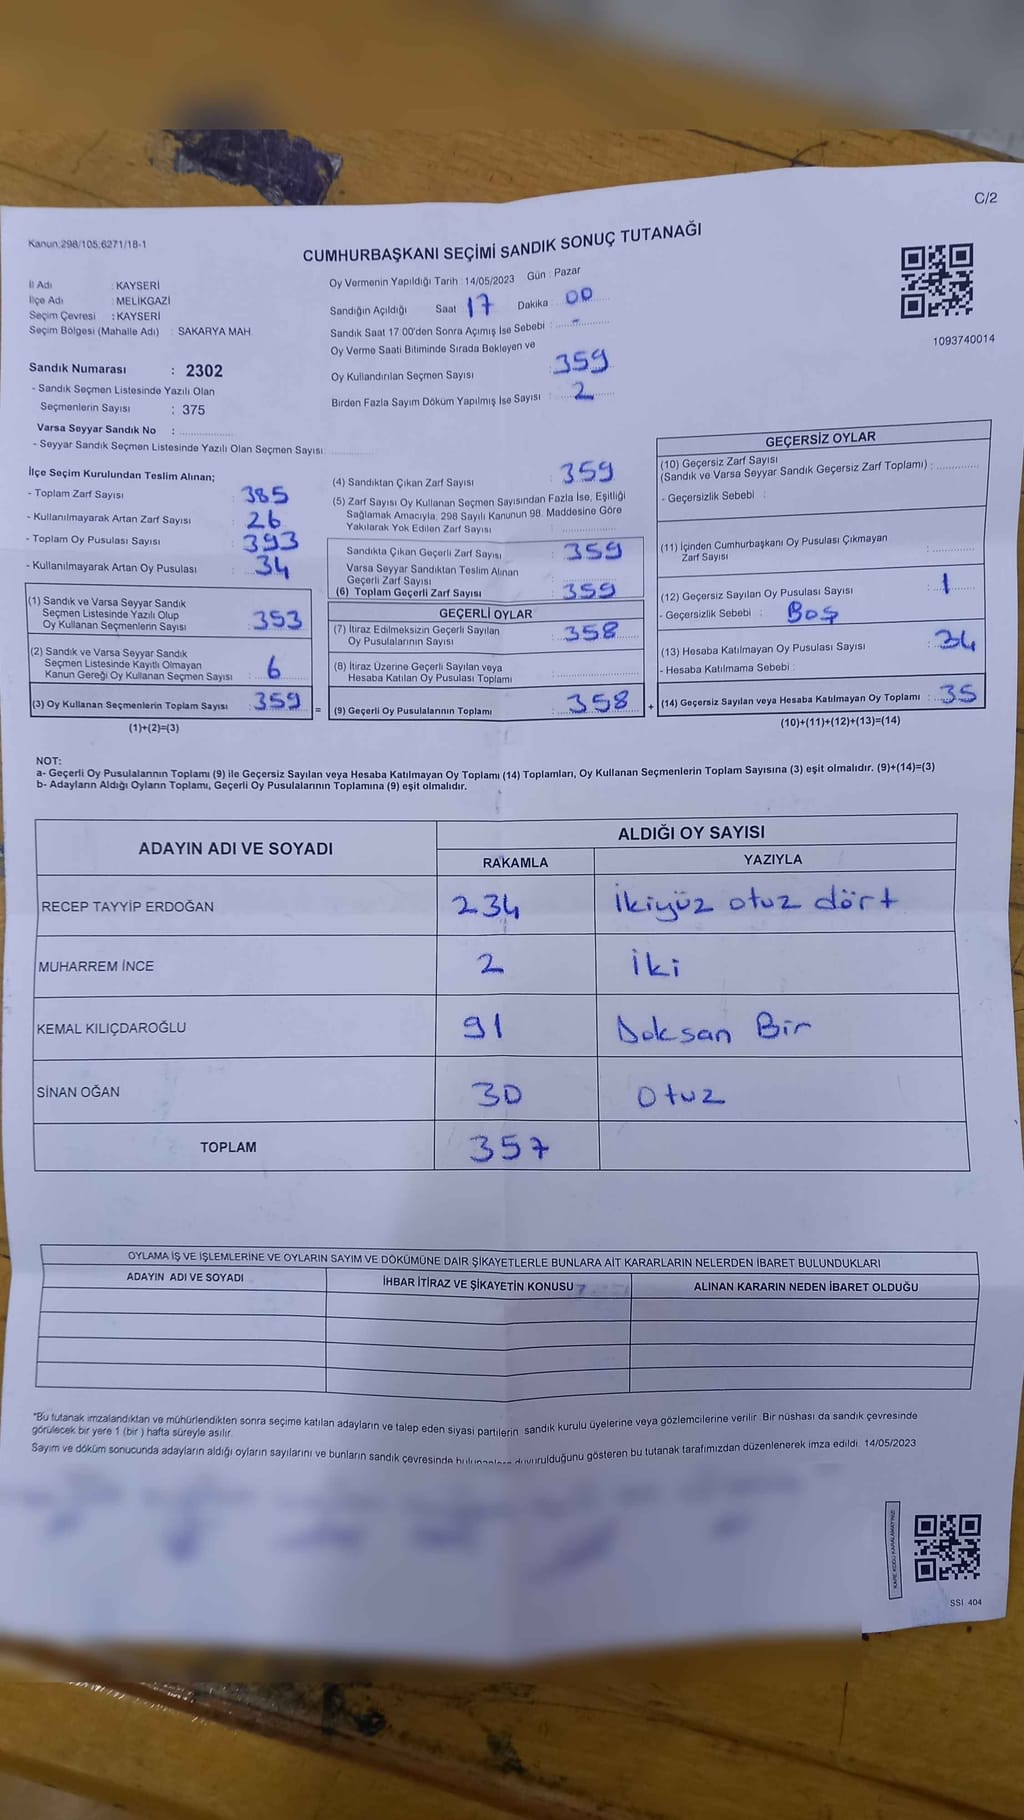 C/2
Kanun:298/105,6271/18-1
CUMHURBAŞKANI SEÇİMİ SANDIK SONUÇ TUTANAĞI
İl Adı : KAYSERİ
İlçe Adı : MELİKGAZİ
Seçim Çevresi : KAYSERİ
Seçim Bölgesi (Mahalle Adı) : SAKARYA MAH.
Sandık Numarası : 2302
- Sandık Seçmen Listesinde Yazılı Olan
Seçmenlerin Sayısı : 375
Varsa Seyyar Sandık No :
- Seyyar Sandık Seçmen Listesinde Yazılı Olan Seçmen Sayısı:
Oy Vermenin Yapıldığı Tarih : 14/05/2023 Gün : Pazar
Sandığın Açıldığı Saat 17 Dakika 00
Sandık Saat 17.00'den Sonra Açımış İse Sebebi : -
Oy Verme Saati Bitiminde Sırada Bekleyen ve
Oy Kullandırılan Seçmen Sayısı : 359
Birden Fazla Sayım Döküm Yapılmış İse Sayısı : 2
1093740014
İlçe Seçim Kurulundan Teslim Alınan;
- Toplam Zarf Sayısı : 385
- Kullanılmayarak Artan Zarf Sayısı : 26
- Toplam Oy Pusulası Sayısı : 393
- Kullanılmayarak Artan Oy Pusulası : 34
(1) Sandık ve Varsa Seyyar Sandık
Seçmen Listesinde Yazılı Olup
Oy Kullanan Seçmenlerin Sayısı : 353
(2) Sandık ve Varsa Seyyar Sandık
Seçmen Listesinde Kayıtlı Olmayan
Kanun Gereği Oy Kullanan Seçmen Sayısı : 6
(3) Oy Kullanan Seçmenlerin Toplam Sayısı : 359
(1)+(2)=(3)
=
(4) Sandıktan Çıkan Zarf Sayısı : 359
(5) Zarf Sayısı Oy Kullanan Seçmen Sayısından Fazla İse, Eşitliği
Sağlamak Amacıyla, 298 Sayılı Kanunun 98. Maddesine Göre
Yakılarak Yok Edilen Zarf Sayısı :
Sandıkta Çıkan Geçerli Zarf Sayısı : 359
Varsa Seyyar Sandıktan Teslim Alınan
Geçerli Zarf Sayısı :
(6) Toplam Geçerli Zarf Sayısı : 359
GEÇERLİ OYLAR
(7) İtiraz Edilmeksizin Geçerli Sayılan
Oy Pusulalarının Sayısı : 358
(8) İtiraz Üzerine Geçerli Sayılan veya
Hesaba Katılan Oy Pusulası Toplamı :
(9) Geçerli Oy Pusulalarının Toplamı : 358
+
GEÇERSİZ OYLAR
(10) Geçersiz Zarf Sayısı
(Sandık ve Varsa Seyyar Sandık Geçersiz Zarf Toplamı) :
- Geçersizlik Sebebi :
(11) İçinden Cumhurbaşkanı Oy Pusulası Çıkmayan
Zarf Sayısı :
(12) Geçersiz Sayılan Oy Pusulası Sayısı : 1
- Geçersizlik Sebebi : Boş
(13) Hesaba Katılmayan Oy Pusulası Sayısı : 34
- Hesaba Katılmama Sebebi :
(14) Geçersiz Sayılan veya Hesaba Katılmayan Oy Toplamı : 35
(10)+(11)+(12)+(13)=(14)
NOT:
a- Geçerli Oy Pusulalarının Toplamı (9) ile Geçersiz Sayılan veya Hesaba Katılmayan Oy Toplamı (14) Toplamları, Oy Kullanan Seçmenlerin Toplam Sayısına (3) eşit olmalıdır. (9)+(14)=(3)
b- Adayların Aldığı Oyların Toplamı, Geçerli Oy Pusulalarının Toplamına (9) eşit olmalıdır.
ADAYIN ADI VE SOYADI ALDIĞI OY SAYISI
RAKAMLA YAZIYLA
RECEP TAYYİP ERDOĞAN 234 İkiyüz otuz dört
MUHARREM İNCE 2 İki
KEMAL KILIÇDAROĞLU 91 Doksan Bir
SİNAN OĞAN 30 Otuz
TOPLAM 357
OYLAMA İŞ VE İŞLEMLERİNE VE OYLARIN SAYIM VE DÖKÜMÜNE DAİR ŞİKAYETLERLE BUNLARA AİT KARARLARIN NELERDEN İBARET BULUNDUKLARI
ADAYIN ADI VE SOYADI İHBAR İTİRAZ VE ŞİKAYETİN KONUSU ALINAN KARARIN NEDEN İBARET OLDUĞU
*Bu tutanak imzalandıktan ve mühürlendikten sonra seçime katılan adayların ve talep eden siyasi partilerin sandık kurulu üyelerine veya gözlemcilerine verilir. Bir nüshası da sandık çevresinde
görülecek bir yere 1 (bir ) hafta süreyle asılır.
Sayım ve döküm sonucunda adayların aldığı oyların sayılarını ve bunların sandık çevresinde bulunanlara duyurulduğunu gösteren bu tutanak tarafımızdan düzenlenerek imza edildi. 14/05/2023
KARE KODU KARALAMAYINIZ!
SSI 404